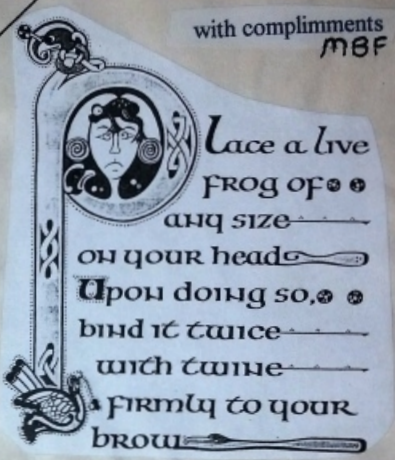 with complimments
MBF
Place a live
frog of
any size
on your head
Upon doing so,
bind it twice
with twine
firmly to your
brow